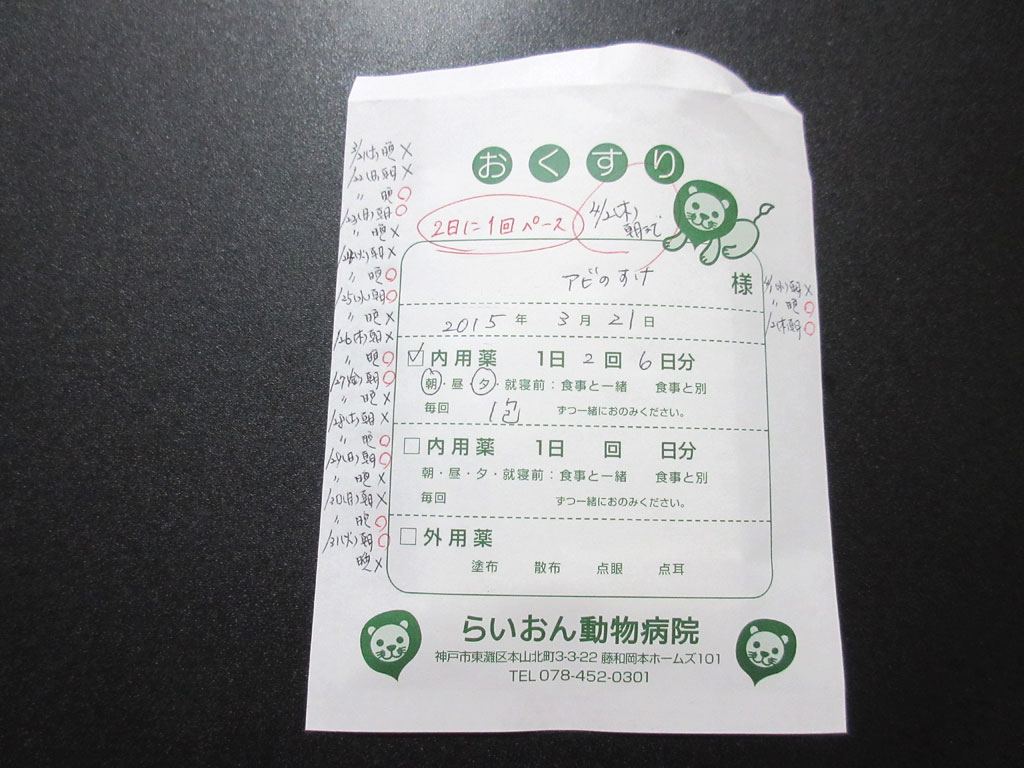 おくすり
2日に1回ペース
4/2(木)
朝まで
アビのすけ 様
2015年 3月21日
☑内用薬 1日2回 6日分
朝・昼・夕・就寝前:食事と一緒 食事と別
毎回 1包 ずつ一緒におのみください。
□内用薬 1日 回 日分
朝・昼・夕・就寝前:食事と一緒 食事と別
毎回 ずつ一緒におのみください。
□外用薬
塗布 散布 点眼 点耳
らいおん動物病院
神戸市東灘区本山北町3-3-22 藤和岡本ホームズ101
TEL 078-452-0301
3/21(土)晩 ×
/22(日)朝 ×
〃 晩 ○
/23(月)朝 ○
〃 晩 ×
/24(火)朝 ×
〃 晩 ○
/25(水)朝 ○
〃 晩 ×
/26(木)朝 ×
〃 晩 ○
/27(金)朝 ○
〃 晩 ×
/28(土)朝 ×
〃 晩 ○
/29(日)朝 ○
〃 晩 ×
/30(月)朝 ×
〃 晩 ○
/31(火)朝 ○
晩 ×
4/1(水)朝 ×
〃 晩 ○
/2(木)朝 ○